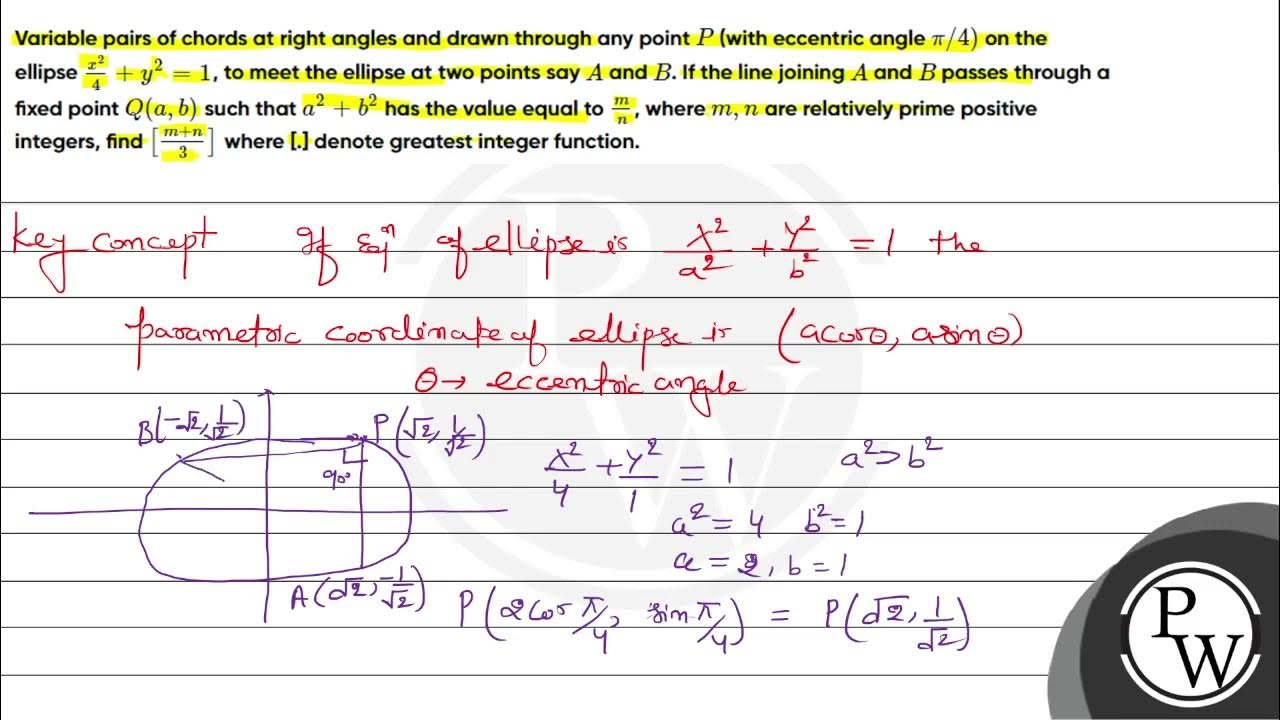 Variable pairs of chords at right angles and drawn through any point P (with eccentric angle π/4) on the
ellipse x²/4 + y² = 1, to meet the ellipse at two points say A and B. If the line joining A and B passes through a
fixed point Q(a, b) such that a² + b² has the value equal to m/n, where m, n are relatively prime positive
integers, find [(m+n)/3] where [.] denote greatest integer function.
Key concept If Eqⁿ of ellipse is x²/a² + y²/b² = 1 the
parametric coordinate of ellipse is (a cos θ, a sin θ)
θ → eccentric angle
B(-√2, 1/√2) P(√2, 1/√2)
90°
A(√2, -1/√2)
x²/4 + y²/1 = 1 a² > b²
a² = 4 b² = 1
a = 2, b = 1
P(2 cos π/4, sin π/4) = P(√2, 1/√2)
P
W